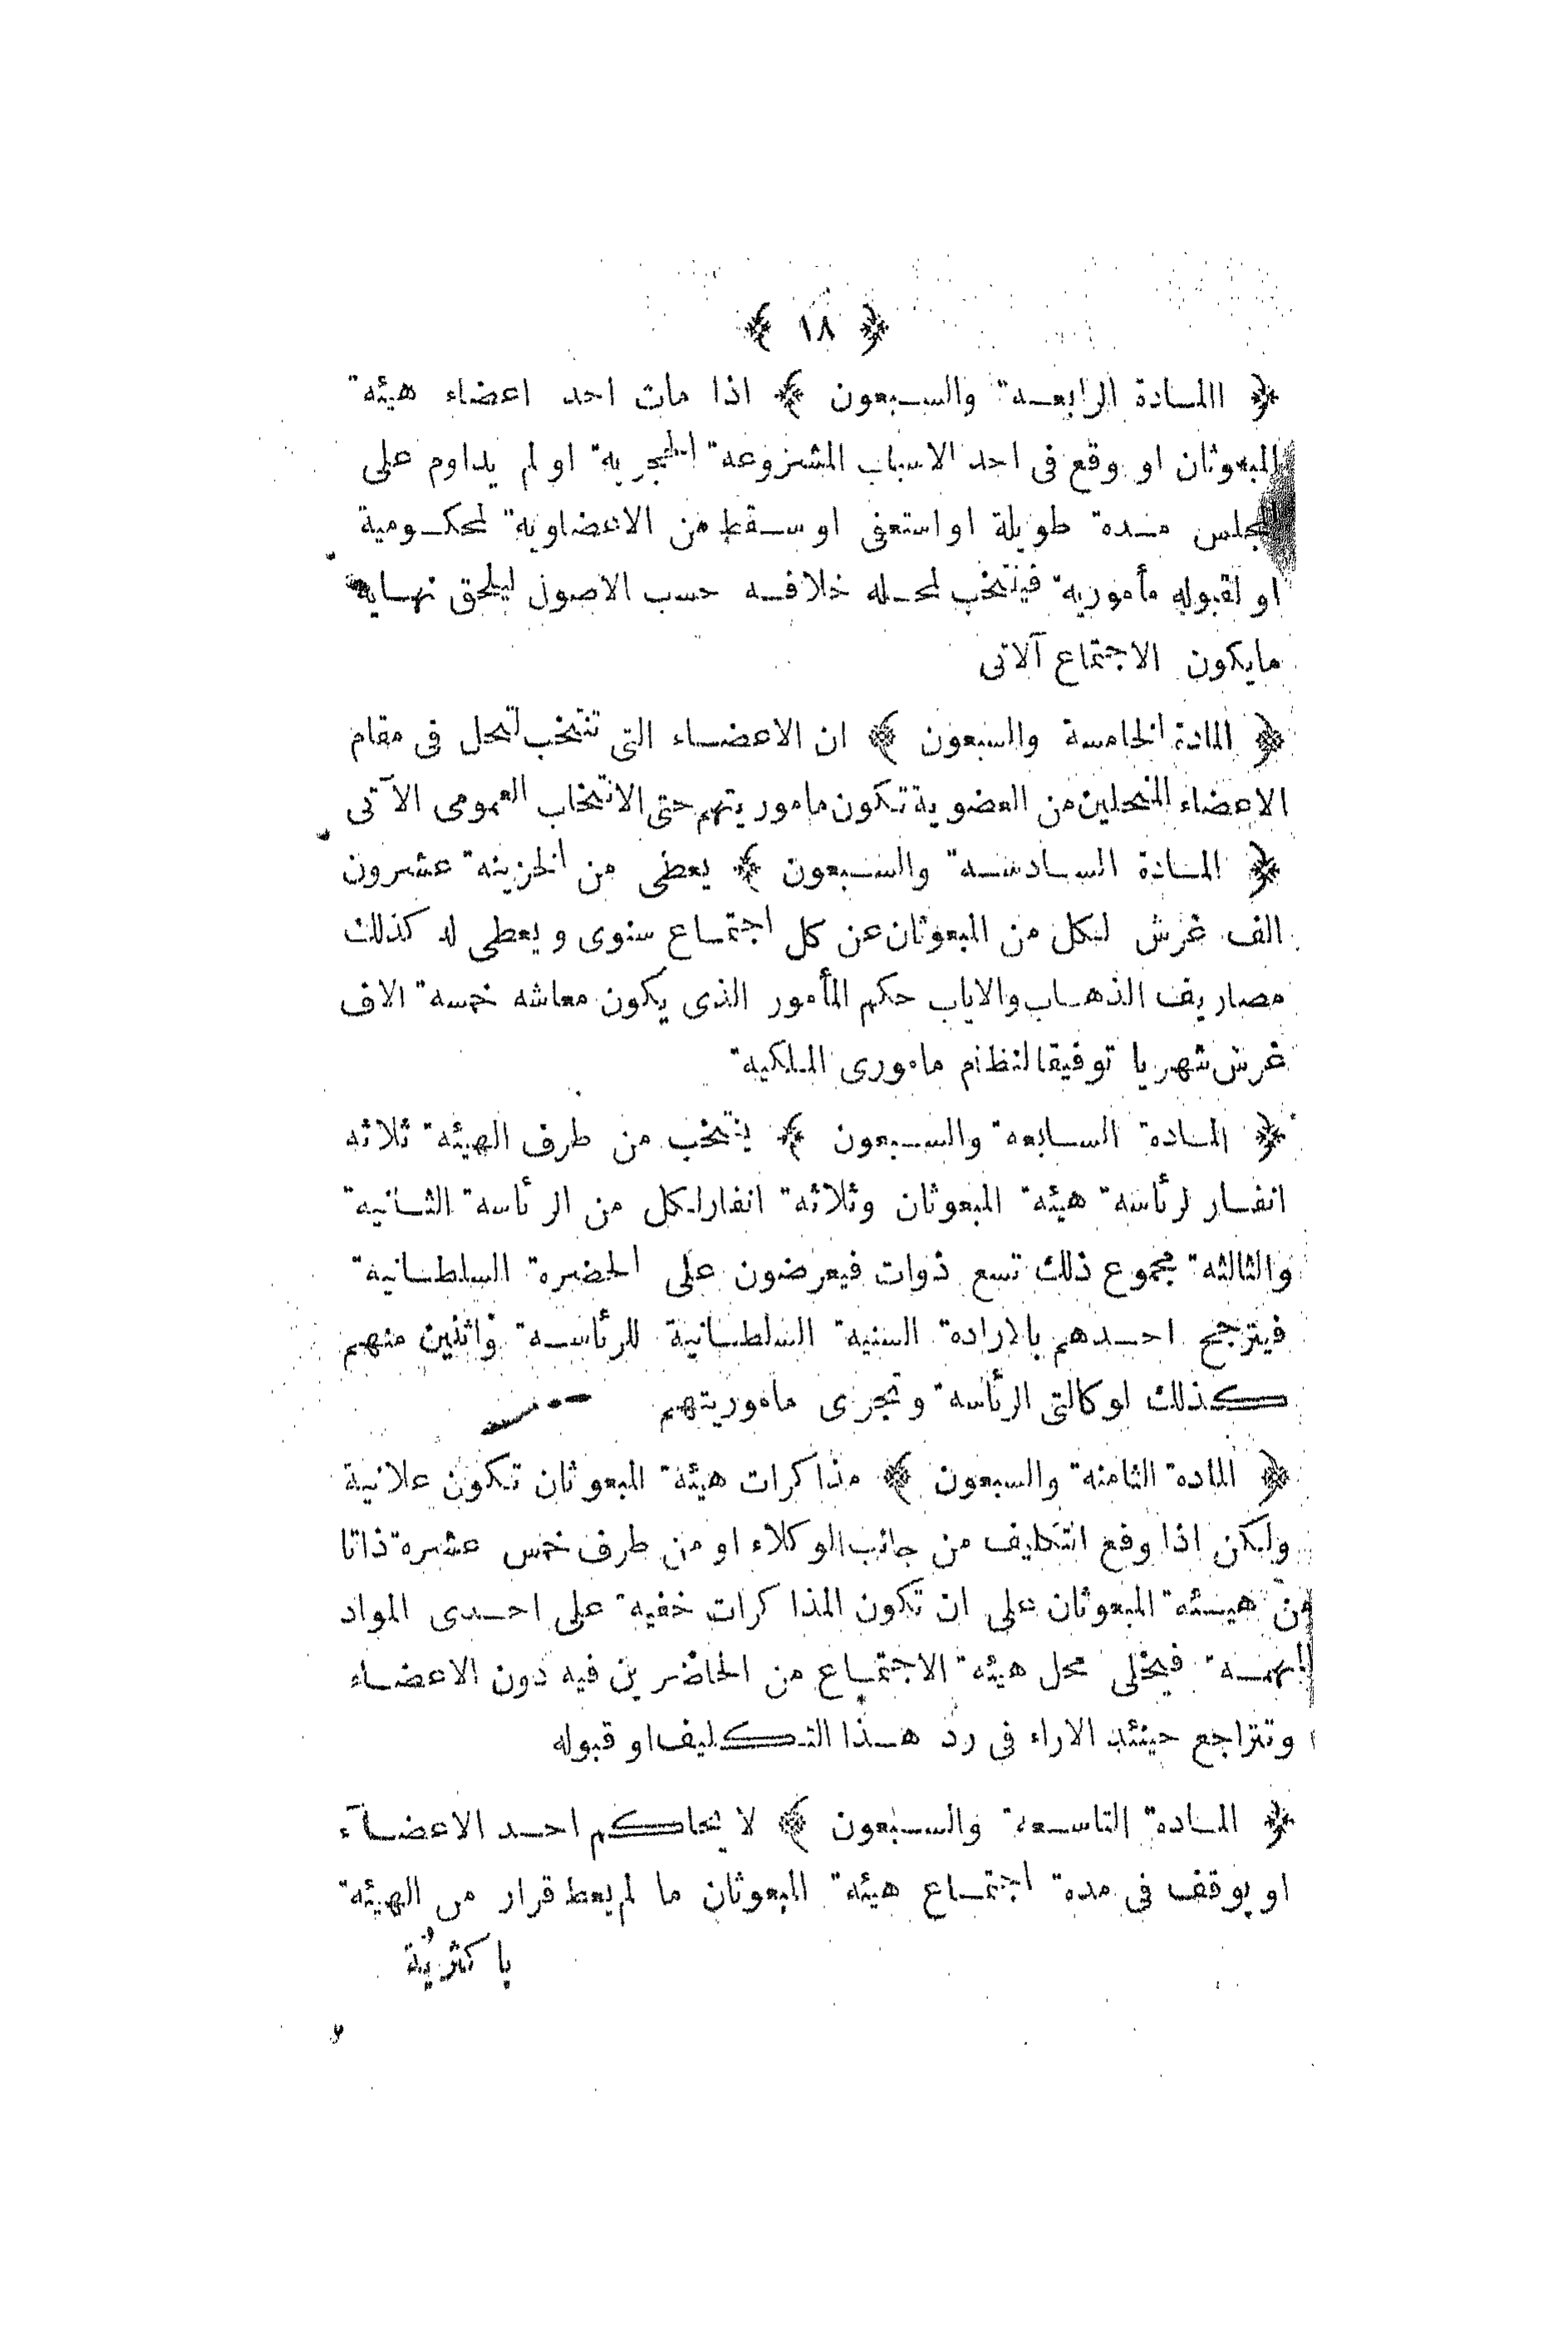 ﴿ ١٨ ﴾
﴿ االمادة الرابعة والسبعون ﴾ اذا مات احد اعضاء هيئة
المبعوثان او وقع فى احد الاسباب المشروعة الحجرية او لم يداوم على
المجلس مدة طويلة او استعفى او سقط من الاعضاوية لمحكومية
او لقبوله مأمورية فينتخب لمحله خلافه حسب الاصول ليلحق نهاية
مايكون الاجتماع آلاتى
﴿ المادة الخامسة والسبعون ﴾ ان الاعضاء التى تنتخب لتحل فى مقام
الاعضاء المنحلين من العضوية تكون ماموريتهم حتى الانتخاب العمومى الآتى
﴿ المادة السادسة والسبعون ﴾ يعطى من الخزينة عشرون
الف غرش لكل من المبعوثان عن كل اجتماع سنوى ويعطى له كذلك
مصاريف الذهاب والاياب حكم المأمور الذى يكون معاشه خمسة الاف
غرش شهريا توفيقا لنظام مامورى الملكية
﴿ المادة السابعة والسبعون ﴾ ينتخب من طرف الهيئة ثلاثه
انفار لرئاسة هيئة المبعوثان وثلاثة انفار لكل من الرئاسة الثانية
والثالثة مجموع ذلك تسع ذوات فيعرضون على الحضرة السلطانية
فيترجح احدهم بالارادة السنية السلطانية للرئاسة واثنين منهم
كذلك لوكالتى الرئاسة وتجرى ماموريتهم
﴿ المادة الثامنة والسبعون ﴾ مذاكرات هيئة المبعوثان تكون علانية
ولكن اذا وقع التكليف من جانب الوكلاء او من طرف خمس عشرة ذاتا
من هيئة المبعوثان على ان تكون المذاكرات خفية على احدى المواد
المهمة فيخلى محل هيئة الاجتماع من الحاضرين فيه دون الاعضاء
وتتراجع حينئذ الاراء فى رد هذا التكليف او قبوله
﴿ المادة التاسعة والسبعون ﴾ لا يحاكم احد الاعضآء
او يوقف فى مدة اجتماع هيئة المبعوثان ما لم يعط قرار من الهيئة
باكثرية